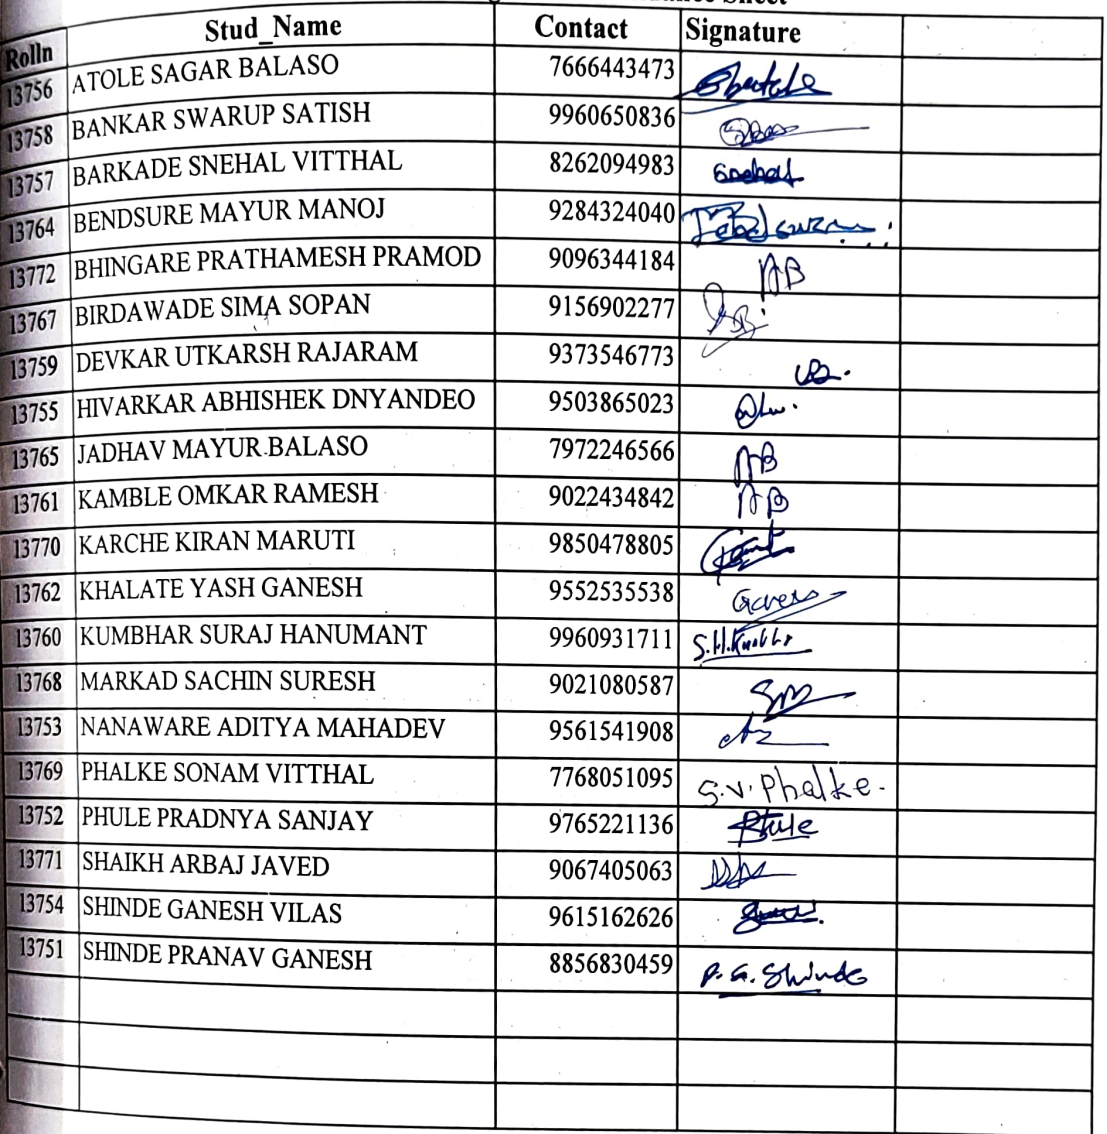 Stud_Name Contact Signature
Rolln
13756 ATOLE SAGAR BALASO 7666443473
13758 BANKAR SWARUP SATISH 9960650836
13757 BARKADE SNEHAL VITTHAL 8262094983 Snehal
13764 BENDSURE MAYUR MANOJ 9284324040
13772 BHINGARE PRATHAMESH PRAMOD 9096344184 AB
13767 BIRDAWADE SIMA SOPAN 9156902277
13759 DEVKAR UTKARSH RAJARAM 9373546773
13755 HIVARKAR ABHISHEK DNYANDEO 9503865023
13765 JADHAV MAYUR BALASO 7972246566 AB
13761 KAMBLE OMKAR RAMESH 9022434842 AB
13770 KARCHE KIRAN MARUTI 9850478805
13762 KHALATE YASH GANESH 9552535538
13760 KUMBHAR SURAJ HANUMANT 9960931711
13768 MARKAD SACHIN SURESH 9021080587
13753 NANAWARE ADITYA MAHADEV 9561541908
13769 PHALKE SONAM VITTHAL 7768051095 S.V. Phalke.
13752 PHULE PRADNYA SANJAY 9765221136 Phule
13771 SHAIKH ARBAJ JAVED 9067405063
13754 SHINDE GANESH VILAS 9615162626
13751 SHINDE PRANAV GANESH 8856830459 P. G. Shinde